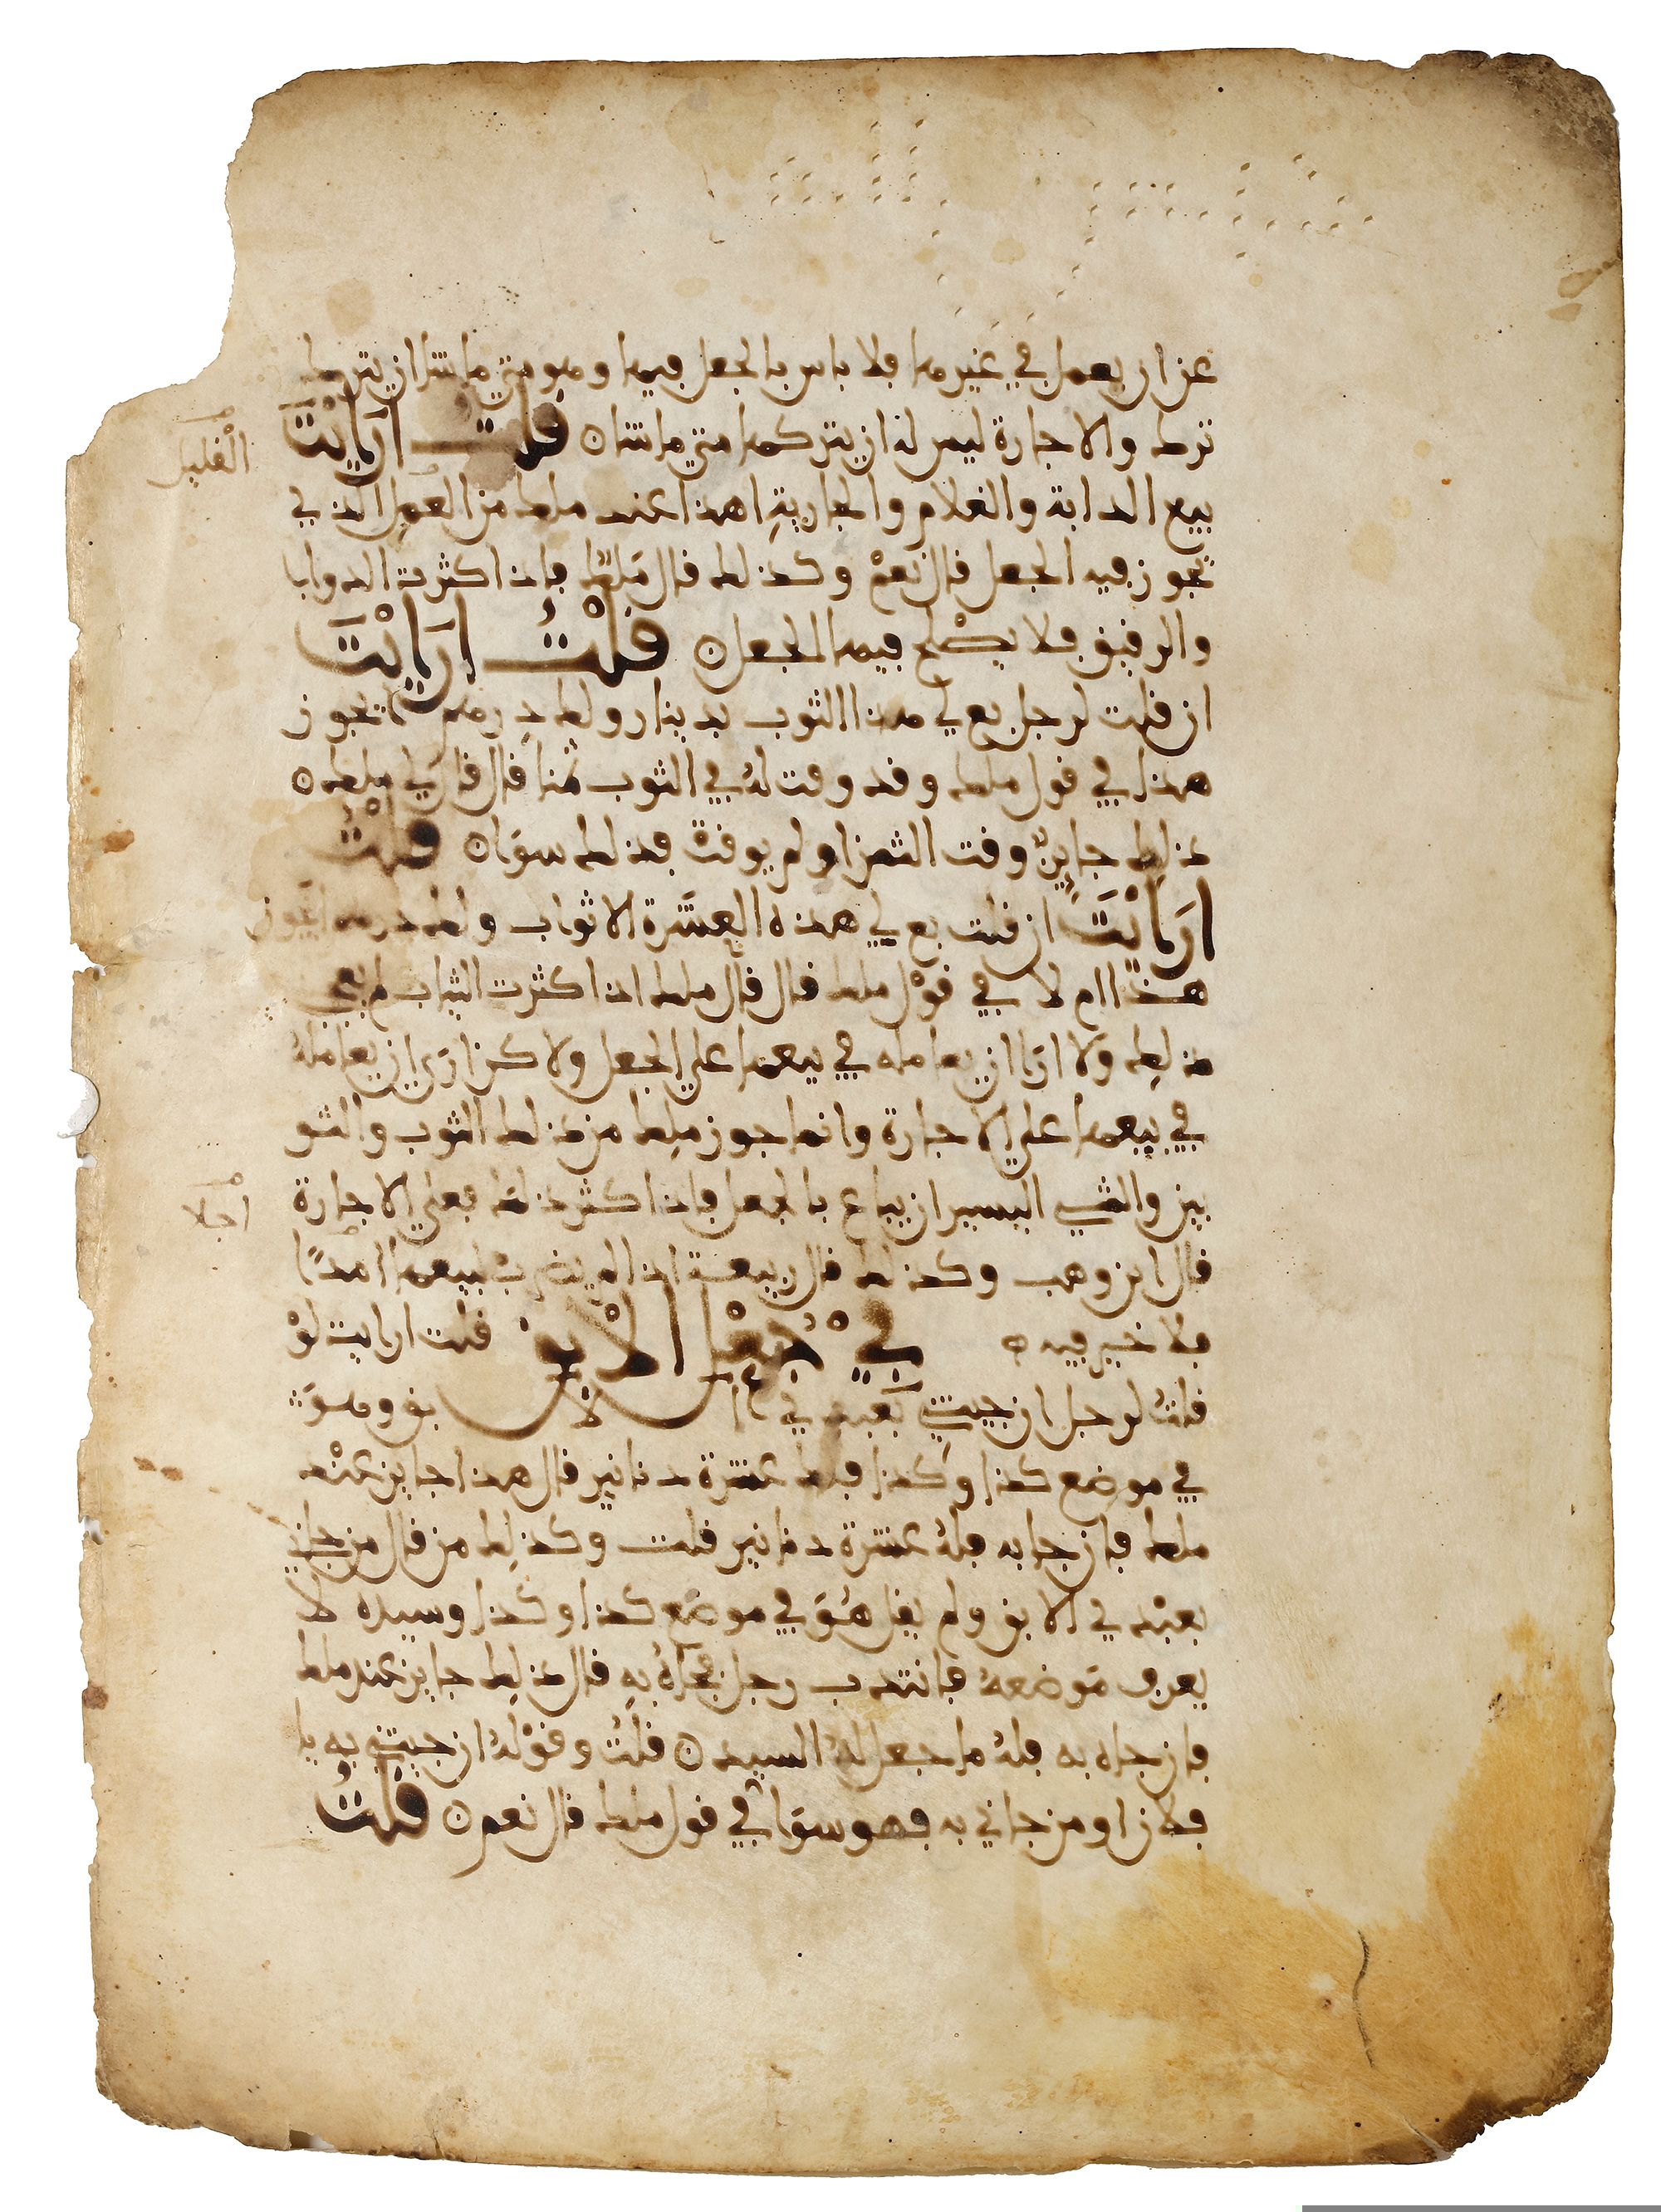 عن ان يعمل في غيرها فلا باس بالجعل فيها وهو متى ما شا ان يترك
ترك والاجارة ليس له ان يتركها متى ما شا ۝ قلت ارايت
القليل
بيع الدابة والغلام والجارية اهذا عند ملك من العمل الذي
يجوز فيه الجعل قال نعم وكذلك قال ملك فاذا كثرت الدواب
والرقيق فلا يصلح فيها الجعل ۝ قلت ارايت
ان قلت لرجل بع لي هذا الثوب بدينار ولك درهم ايجوز
هذا في قول ملك وقد وقت له في الثوب ثمنا قال قال لي ملك ۝
ذلك جايز وقت الثمن او لم يوقت فذلك سوا ۝ قلت
ارايت ان قلت بع لي هذه العشرة الاثواب ولك درهم ايجوز
هذا ام لا في قول ملك قال قال ملك اذا كثرت الثياب لم يجز
ذلك ولا ارا ان يعامله في بيعها على الجعل ولاكن ارى ان يعامله
في بيعها على الاجارة وانما جوز ملك من ذلك الثوب والثو
بين والشي اليسير ان يباع بالجعل فاذا كثر ذلك فعلى الاجارة
اجلا
قال ابن وهب وكذلك قال ربيعة اذا لم يضرب لبيعها امدا
فلا خير فيه ۝ في جعل الابق قلت ارايت لو
قلت لرجل ان جيتني بعبدي الابق وهو
في موضع كذا وكذا فلك عشرة دنانير قال هذا جايز عند
ملك فان جا به فله عشرة دنانير قلت وكذلك من قال من جاني
بعبدي الابق ولم يقل هو في موضع كذا وكذا وسيده لا
يعرف موضعه فانتدب رجل فجاه به قال ذلك جايز عند ملك
فان جاه به فله ما جعل له السيد ۝ قلت وقوله ان جيتني به يا
فلان او من جاني به فهو سوا في قول ملك قال نعم ۝ قلت